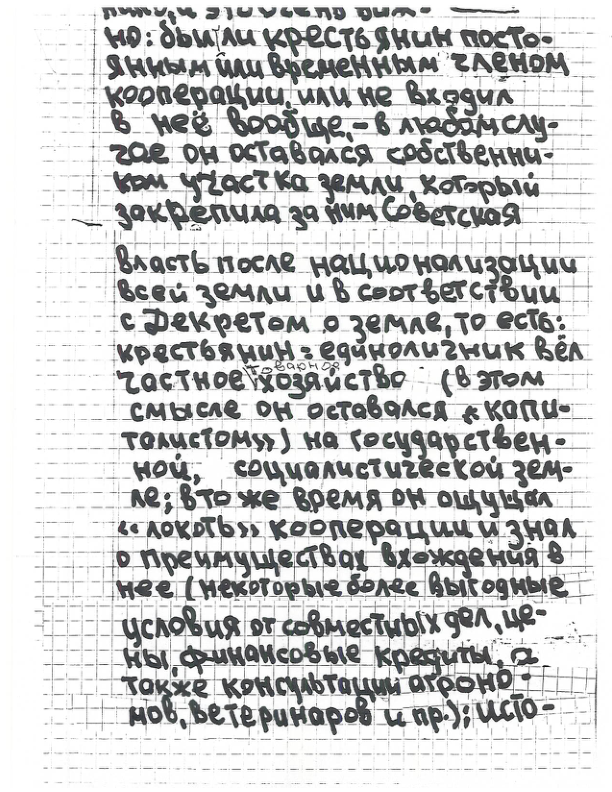 нимо, и это очень важ-
но: был ли крестьянин посто-
янным или временным членом
кооперации, или не входил
в неё вообще, – в любом слу-
чае он оставался собственни-
ком участка земли, который
закрепила за ним Советская
власть после национализации
всей земли и в соответствии
с Декретом о земле, то есть:
крестьянин = единоличник вёл
частное товарное хозяйство (в этом
смысле он оставался «капи-
талистом») на государствен-
ной, социалистической зем-
ле; в то же время он ощущал
«локоть» кооперации и знал
о преимуществах вхождения в
нее (некоторые более выгодные
условия от совместных дел, це-
ны, финансовые кредиты, а
также консультации агроно-
мов, ветеринаров и пр.); исто-